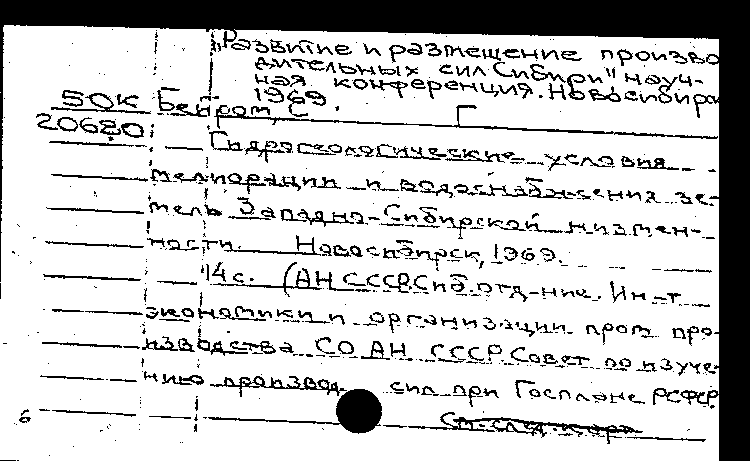 „Развитие и размещение произво
дительных сил Сибири" науч-
ная конференция. Новосибирск
1969.
50К Бейром, С. Г
20680
Гидрогеологические условия
мелиорации и водоснабжения зе-
мель Западно-Сибирской низмен-
ности. Новосибирск, 1969.
14с. (АН СССР. Сиб. отд-ние. Ин-т
экономики и организации пром про-
изводства СО АН СССР. Совет по изуче
нию производ. сил при Госплане РСФСР
См. след. карт
6